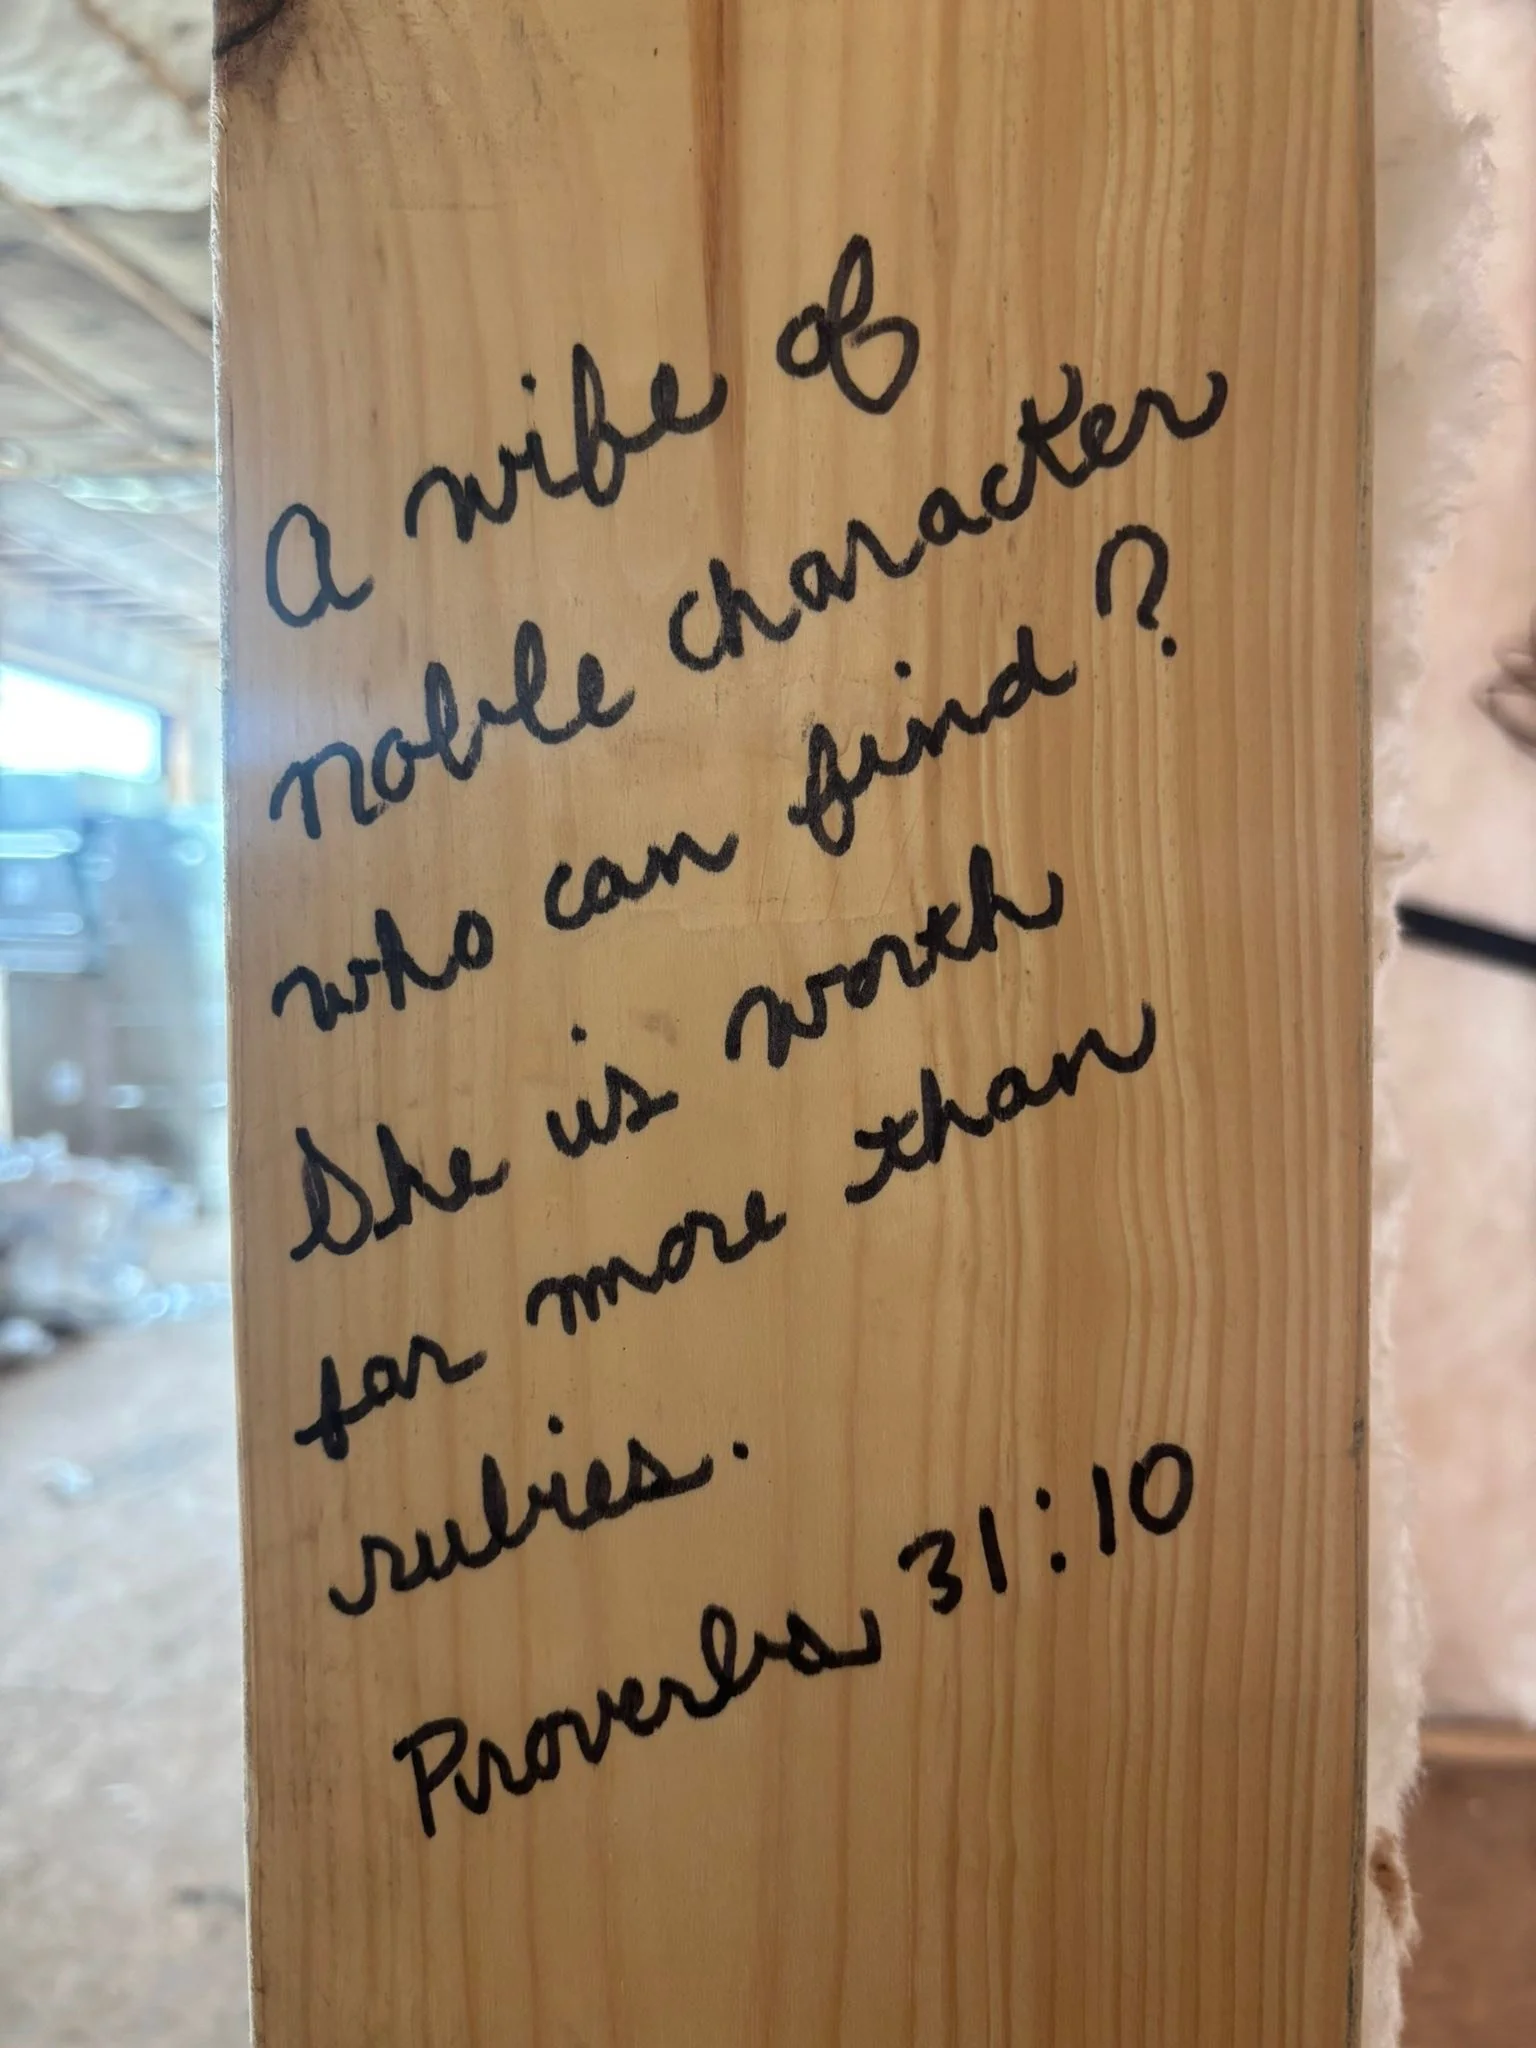 A wife of
noble character
who can find?
She is worth
far more than
rubies.
Proverbs 31:10